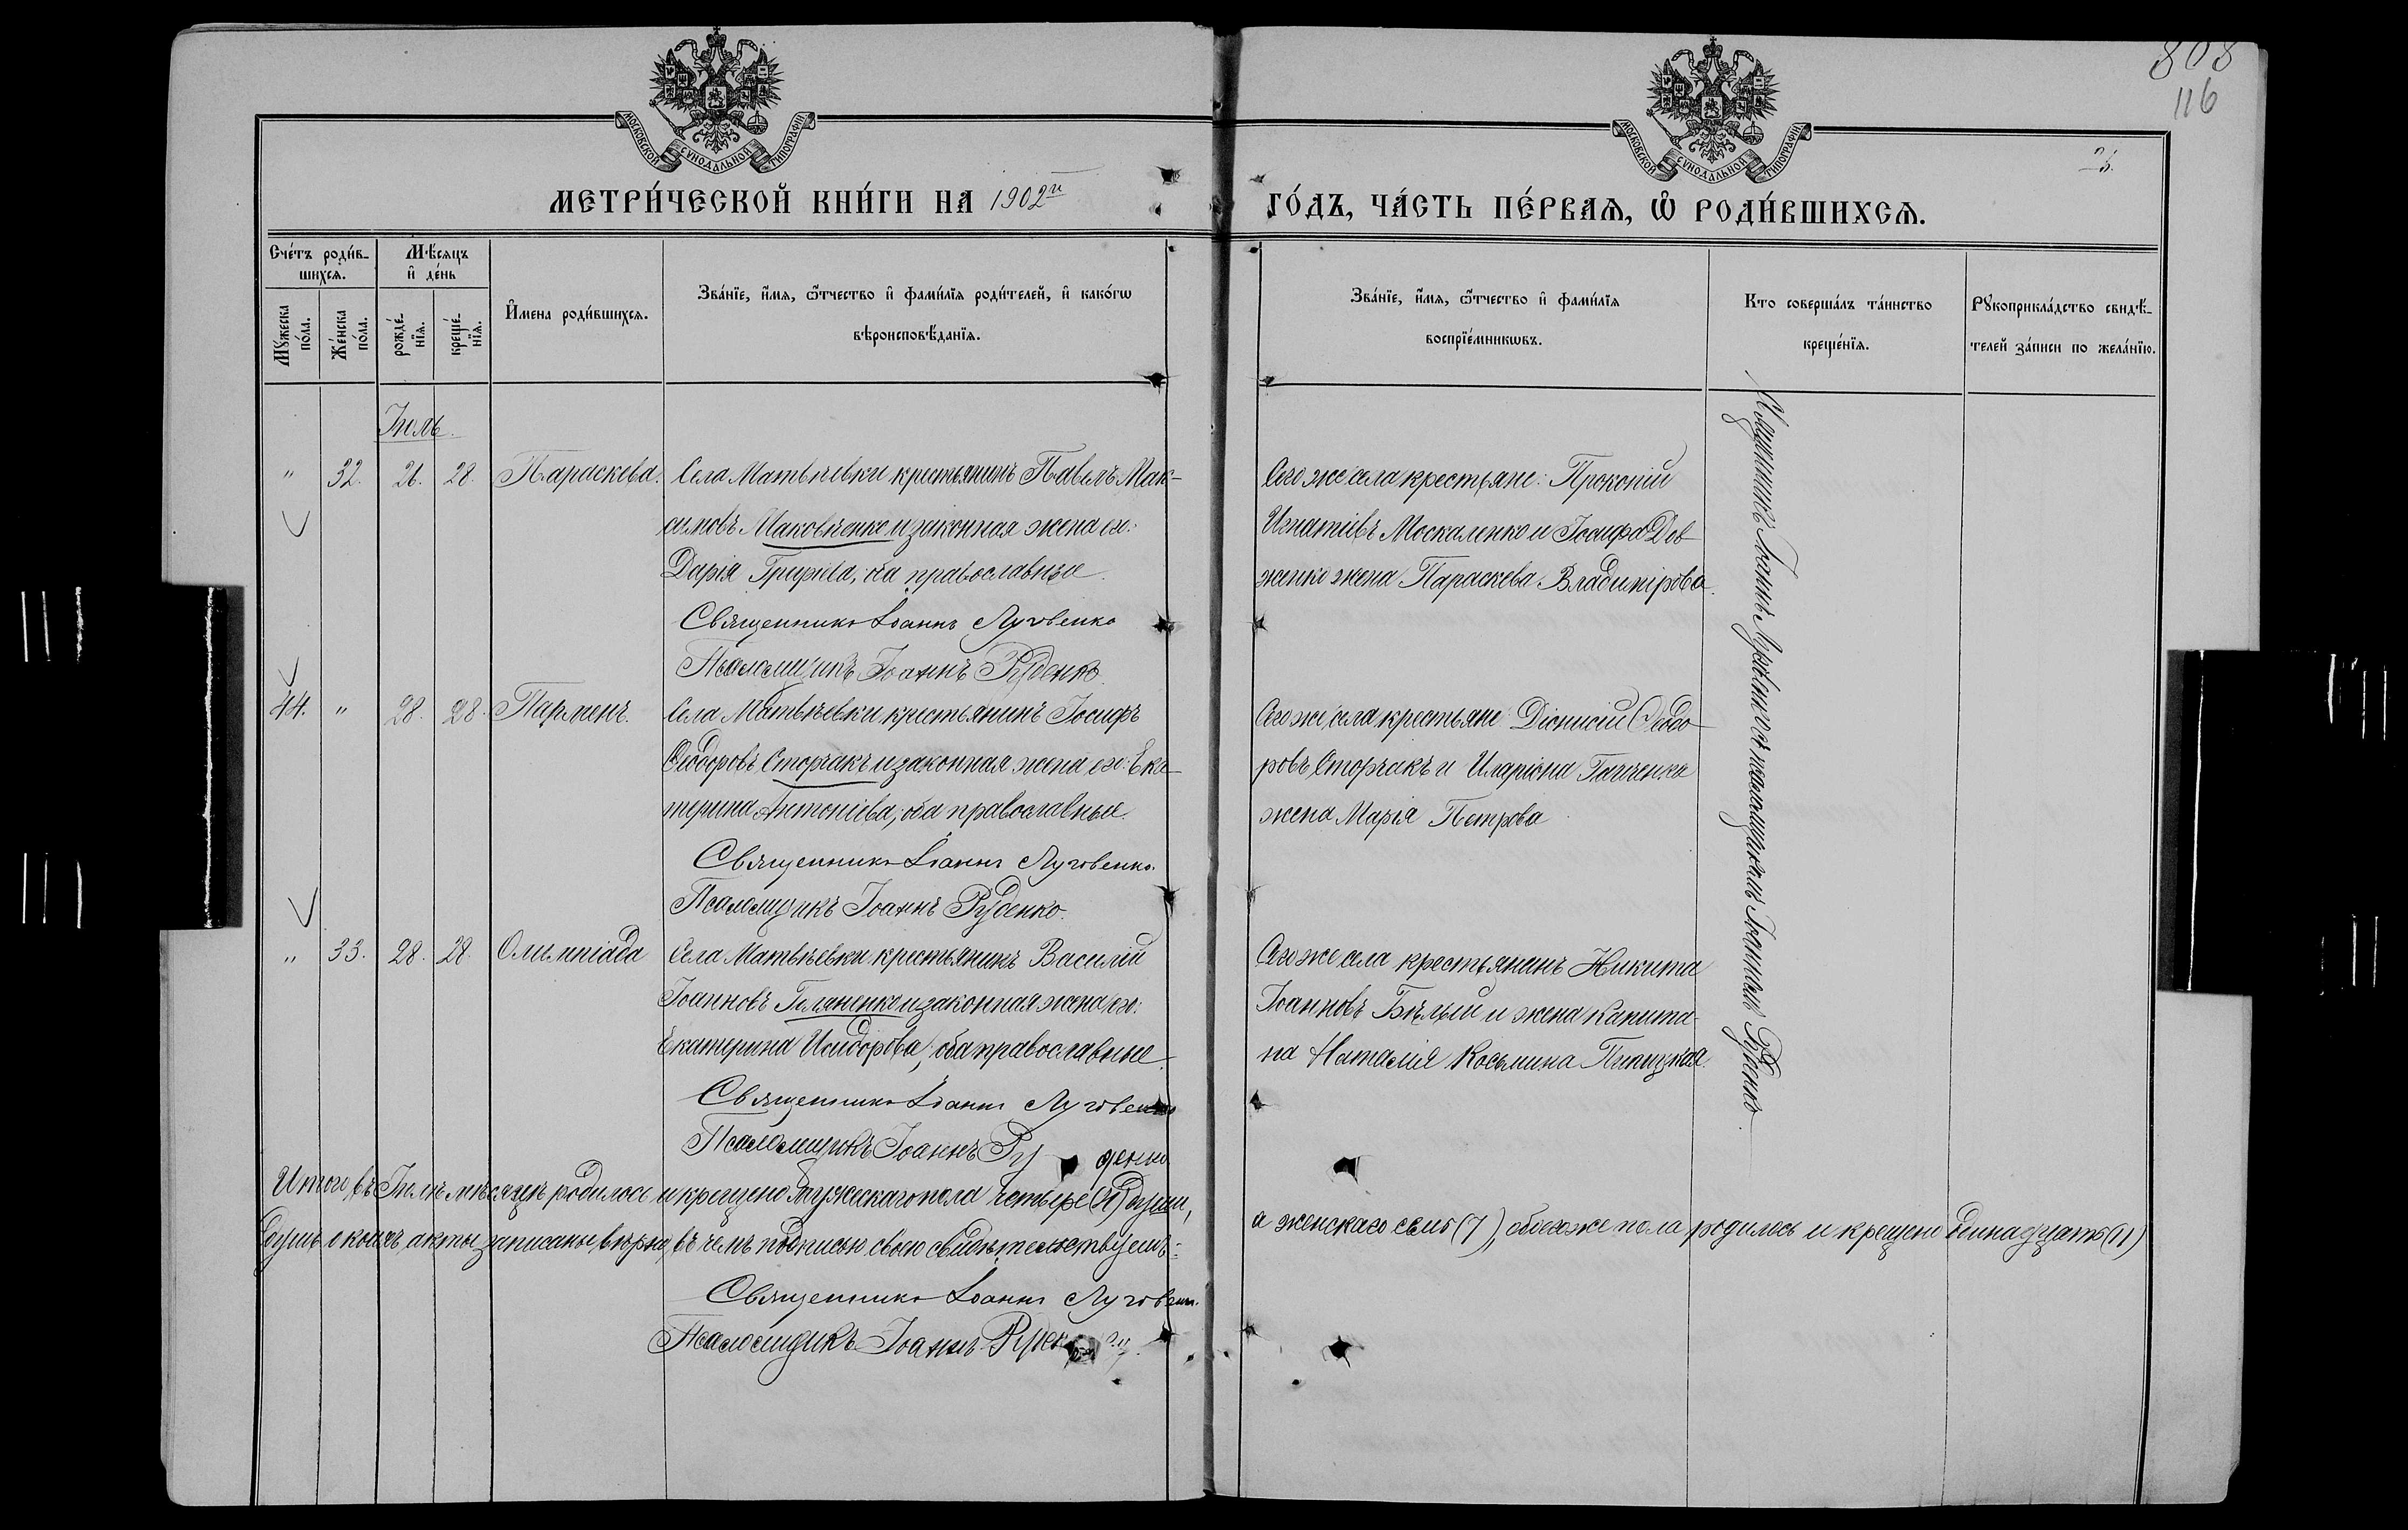 808
116
МОСКОВСКОЙ СѴНОДАЛЬНОЙ ТИПОГРАФІИ
МОСКОВСКОЙ СѴНОДАЛЬНОЙ ТИПОГРАФІИ
МЕТРИ́ЧЕСКОЙ КНИ́ГИ НА 1902й ГО́ДЪ, ЧА́СТЬ ПЕ́РВАЯ, Ѡ РОДИ́ВШИХСЯ.
Сче́тъ роди́в-
шихся.
Му́жеска по́ла.
Же́нска по́ла.
Мѣ́сяцъ
и де́нь
рожде́-
нїя.
креще́-
нїя.
Имена роди́вшихся.
Зва́нїе, и́мя, ѻ҆́тчество и҆ фами́лїя роди́телей, и҆ како́гѡ
вѣроисповѣ́данїя.
Зва́нїе, и́мя, ѻ҆́тчество и҆ фами́лїя
воспрїе́мникѡвъ.
Кто соверша́лъ та́инство
креще́нїя.
Рꙋкоприкла́дство свидѣ́-
телей за́писи по жела́нїю.
Іюль.
" 32. 26. 28. Параскева. Села Матвѣевки крестьянинъ Павелъ Мак-
симовъ Маковѣенко и законная жена его:
Дарія православные.
Священникъ Іоаннъ Луговенко
Псаломщикъ Іоаннъ Руденко.
Сего же села крестьяне: Прокопій
Игнатіевъ Москаленко и Іосифа Дов
женко жена Параскева Владимірова.
44. " 28. 28. Парменъ. Села Матвѣевки крестьянинъ Іосифъ
Ѳеодоровъ Сторчакъ и законная жена его: Ека-
терина Антоніева; оба православные.
Священникъ Іоаннъ Луговенко.
Псаломщикъ Іоаннъ Руденко.
Сего же села крестьяне Діонисій Ѳеодо
ровъ Сторчакъ и Иларіона
жена Марія Петрова
" 33. 28. 28. Олимпіада Села Матвѣевки крестьянинъ Василій
Іоанновъ и законная жена его:
Екатерина Исидорова; оба православные.
Священникъ Іоаннъ Луговенко
Псаломщикъ Іоаннъ Руденко
Сего же села крестьянинъ Никита
Іоанновъ Бѣлый и жена капита-
на Наталія Косьмина
Священникъ Іоаннъ Луговенко съ псаломщикомъ Іоанномъ Руденко
Итого въ Іюлѣ мѣсяцѣ родилось и крещено мужескаго пола четыре (4) души, а женскаго семь (7), обоего же пола родилось и крещено одинадцать (11)
душъ о коихъ акты записаны вѣрно, въ чемъ подписью своею свидѣтельствуемъ:
Священникъ Іоаннъ Луговенко.
Псаломщикъ Іоаннъ Руденко